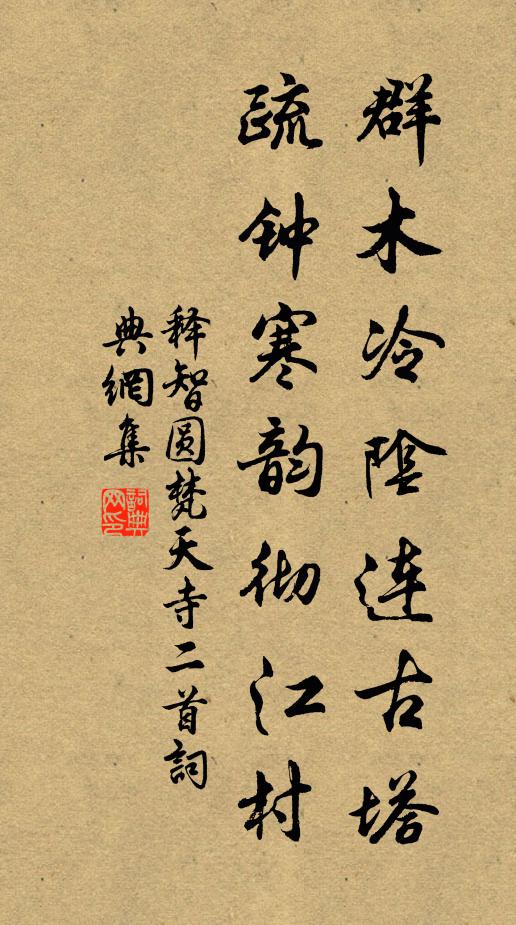 群木冷陰连古塔
疏钟寒韵彻江村
释智圆梵天寺二首詞
典網集
詞典
网印